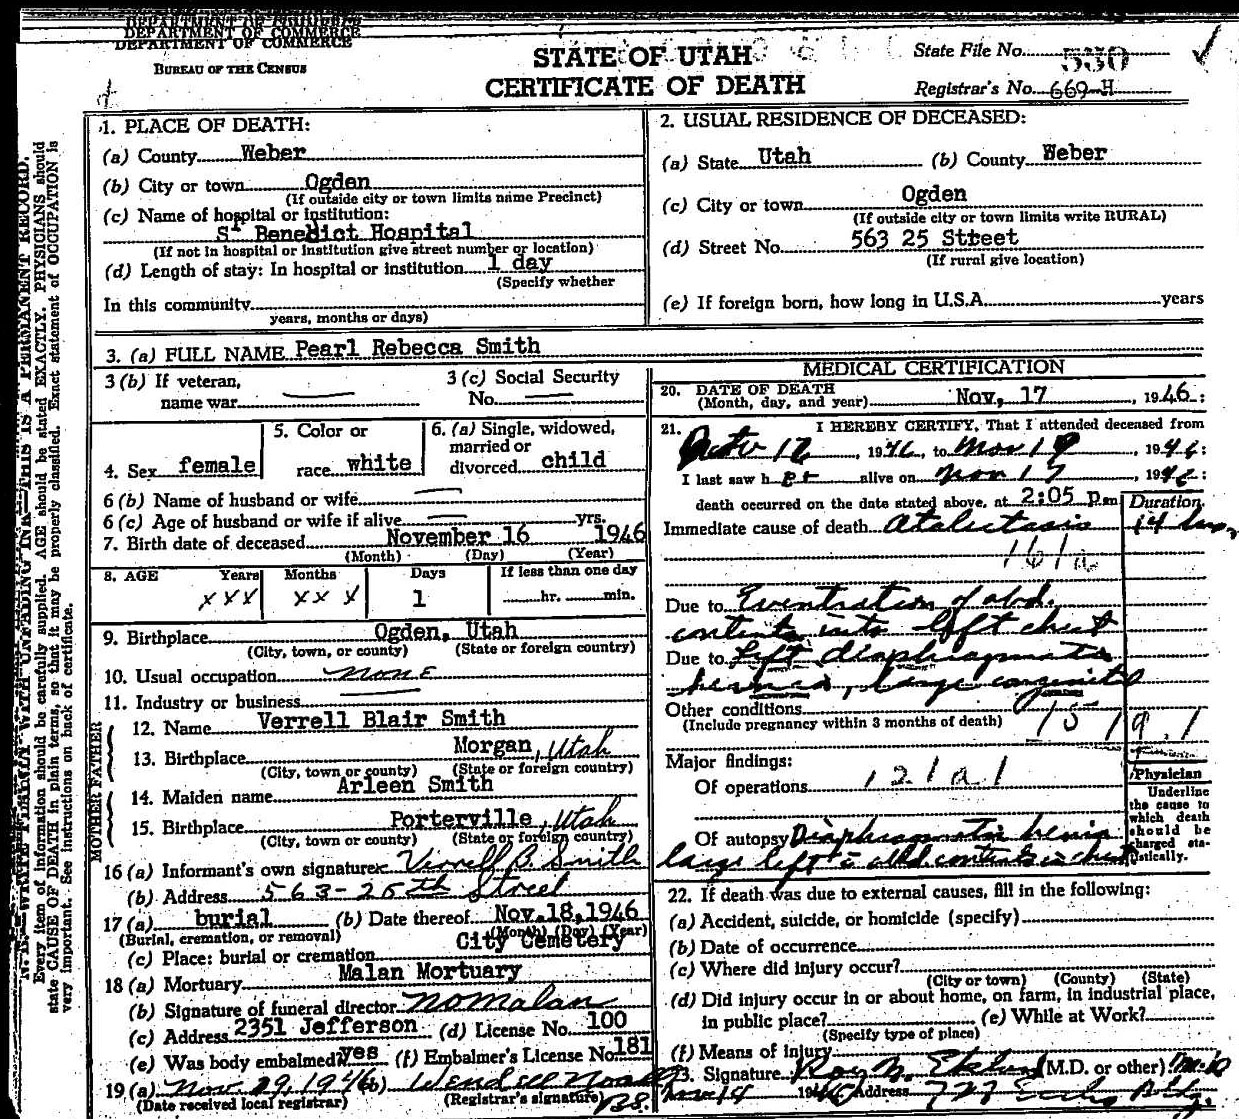 DEPARTMENT OF COMMERCE
DEPARTMENT OF COMMERCE
DEPARTMENT OF COMMERCE
BUREAU OF THE CENSUS
STATE OF UTAH
CERTIFICATE OF DEATH
State File No. 550
Registrar's No. 669-H
N. B.—WRITE PLAINLY WITH UNFADING INK—THIS IS A PERMANENT RECORD.
Every item of information should be carefully supplied. AGE should be stated EXACTLY. PHYSICIANS should
state CAUSE OF DEATH in plain terms, so that it may be properly classified. Exact statement of OCCUPATION is
very important. See instructions on back of certificate.
1. PLACE OF DEATH:
(a) County Weber
(b) City or town Ogden
(If outside city or town limits name Precinct)
(c) Name of hospital or institution:
St Benedict Hospital
(If not in hospital or institution give street number or location)
(d) Length of stay: In hospital or institution 1 day
(Specify whether
In this community
years, months or days)
2. USUAL RESIDENCE OF DECEASED:
(a) State Utah (b) County Weber
(c) City or town Ogden
(If outside city or town limits write RURAL)
(d) Street No. 563 25 Street
(If rural give location)
(e) If foreign born, how long in U.S.A. years
3. (a) FULL NAME Pearl Rebecca Smith
3 (b) If veteran,
name war
3 (c) Social Security
No.
4. Sex female
5. Color or
race white
6. (a) Single, widowed,
married or
divorced child
6 (b) Name of husband or wife
6 (c) Age of husband or wife if alive yrs.
7. Birth date of deceased November 16 1946
(Month) (Day) (Year)
8. AGE Years Months Days If less than one day
xxx xxx 1 hr. min.
9. Birthplace Ogden, Utah
(City, town, or county) (State or foreign country)
10. Usual occupation none
11. Industry or business
FATHER
12. Name Verrell Blair Smith
13. Birthplace Morgan, Utah
(City, town or county) (State or foreign country)
MOTHER
14. Maiden name Arleen Smith
15. Birthplace Porterville, Utah
(City, town or county) (State or foreign country)
16 (a) Informant's own signature Verrell B. Smith
(b) Address 563-25th Street
17 (a) burial (b) Date thereof Nov.18,1946
(Burial, cremation, or removal) (Month) (Day) (Year)
(c) Place: burial or cremation City Cemetery
18 (a) Mortuary Malan Mortuary
(b) Signature of funeral director
(c) Address 2351 Jefferson (d) License No. 100
(e) Was body embalmed? yes (f) Embalmer's License No. 181
19 (a) Nov. 29, 1946 (b) Wendell
(Date received local registrar) (Registrar's signature)
MEDICAL CERTIFICATION
20. DATE OF DEATH
(Month, day, and year) Nov, 17, 1946:
21. I HEREBY CERTIFY, That I attended deceased from
1946, to Nov 17, 1946:
I last saw her alive on Nov 17 1946:
death occurred on the date stated above, at 2:05 p.m
Duration
Immediate cause of death Atalectasis 14 hrs.
161a
Due to Eventration of abd.
contents into left chest
Due to Left diaphragmatic
hernia, large congenital
Other conditions
(Include pregnancy within 3 months of death)
1519.1
Major findings:
Of operations 121a1
Of autopsy Diaphragmatic hernia
large left c abd. contents in chest
Physician
Underline
the cause to
which death
should be
charged sta-
tistically.
22. If death was due to external causes, fill in the following:
(a) Accident, suicide, or homicide (specify)
(b) Date of occurrence
(c) Where did injury occur?
(City or town) (County) (State)
(d) Did injury occur in or about home, on farm, in industrial place,
in public place? (e) While at Work?
(Specify type of place)
(f) Means of injury
23. Signature Roy (M.D. or other) M.D
1946 Address Eccles Bldg.